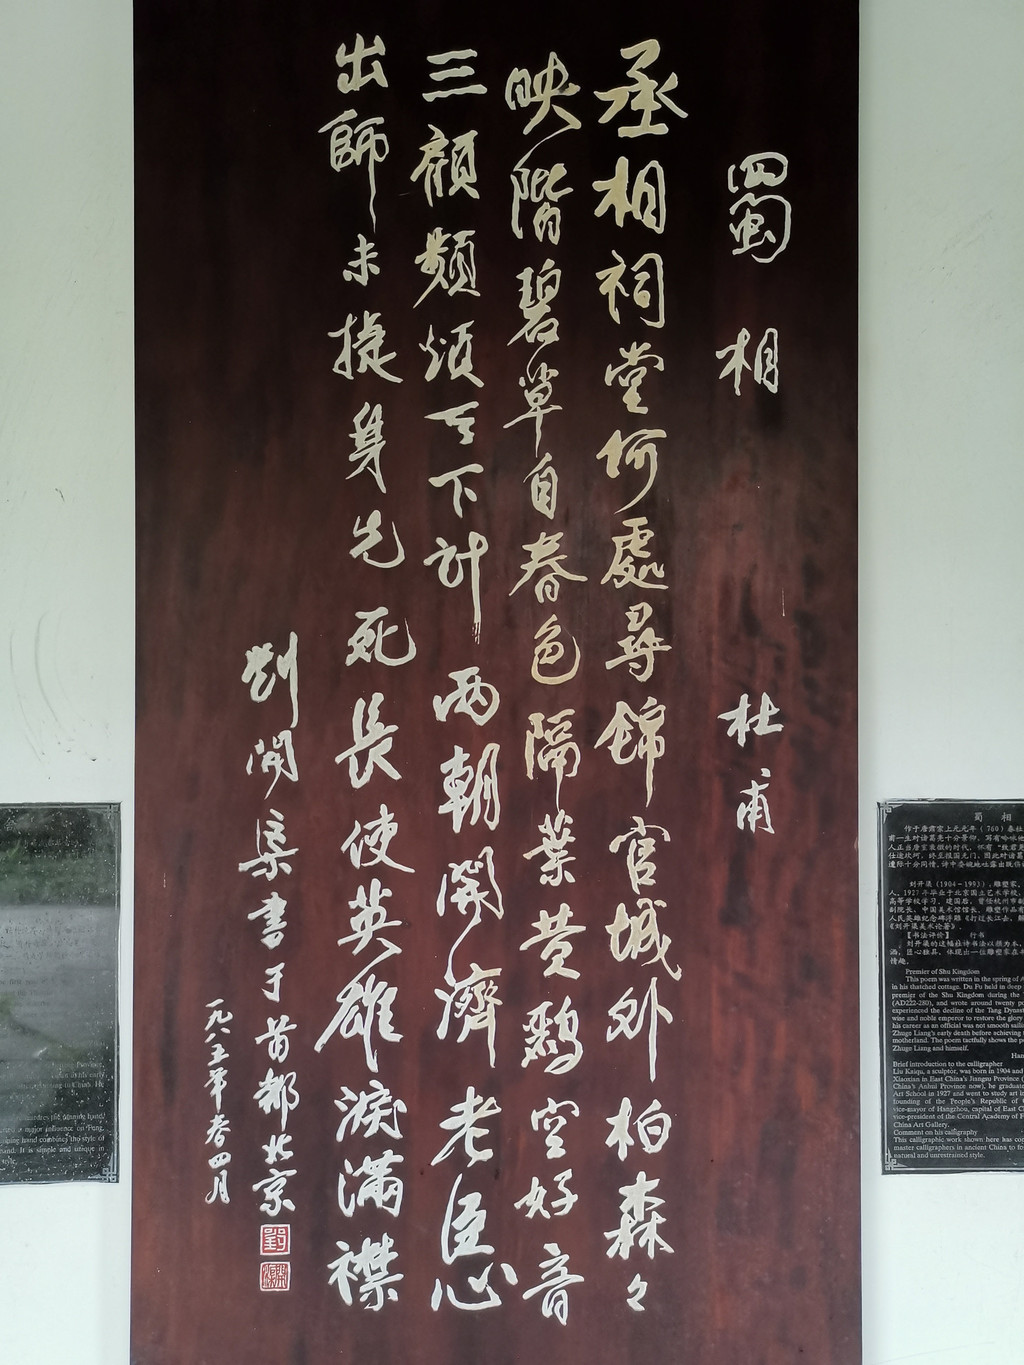 蜀相 杜甫
丞相祠堂何處尋錦官城外柏森々
映階碧草自春色隔葉黄鸝空好音
三顧頻煩天下計兩朝開濟老臣心
出師未捷身先死長使英雄淚滿襟
劉開渠書于首都北京
一九八五年春四月
蜀 相
作于唐肃宗上元元年（760）春杜
Premier of Shu Kingdom
This poem was written in the spring of
in his thatched cottage. Du Fu held in deep
premier of the Shu Kingdom during the
(AD222-280), and wrote around twenty po
experienced the decline of the Tang Dynast
wise and noble emperor to restore the glory
his career as an official was not smooth sail
Zhuge Liang's early death before achieving
motherland. The poem tactfully shows the po
Zhuge Liang and himself.
Han
Brief introduction to the calligrapher
Liu Kaiqu, a sculptor, was born in 1904 and
Xiaoxian in East China's Jiangsu Province (
China's Anhui Province now), he graduate
Art School in 1927 and went to study art in
founding of the People's Republic of
vice-mayor of Hangzhou, capital of East C
vice-president of the Central Academy of F
China Art Gallery.
Comment on his calligraphy
This calligraphic work shown here has co
master calligraphers in ancient China to fo
natural and unrestrained style.